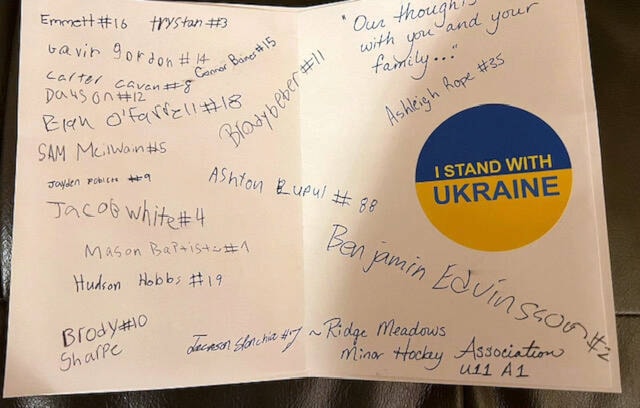 Emmett #16
trystan #3
Gavin gordon #14
Connor Baines #15
Carter Cavan #8
Dawson #12
Brody beber #11
O'Farrell #18
SAM Mcilwain #5
Jayden #9
Ashton Lupul # 88
Jacob white #4
Mason Baptiste #1
Hudson Hobbs #19
Brody #10
Sharpe
Jackson #7
"Our thoughts
with you and your
family..."
Ashleigh Rope #35
I STAND WITH
UKRAINE
Benjamin Edvinsson #2
~ Ridge Meadows
Minor Hockey Association
U11 A1